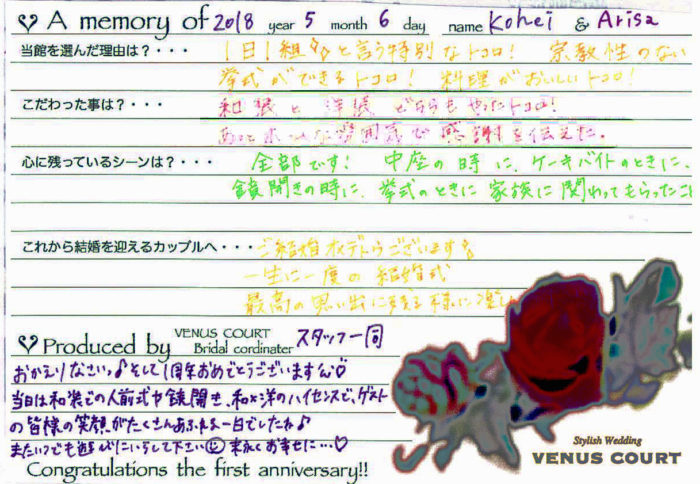 A memory of 2018 year 5 month 6 day name Kohei & Arisa
当館を選んだ理由は？・・・ 1日1組♪と言う特別なトコロ！ 宗教性のない
挙式ができるトコロ！ 料理がおいしいトコロ！
こだわった事は？・・・ 和装と洋装どちらもやったトコロ！
な雰囲気で感謝を伝えた。
心に残っているシーンは？・・・ 全部です！ 中座の時に、ケーキバイトのときに、
鏡開きの時に、挙式のときに家族に関わってもらったこ
これから結婚を迎えるカップルへ・・・ ご結婚おめでとうございます
一生に一度の結婚式
最高の思い出に残る様に楽し
Produced by VENUS COURT Bridal cordinater スタッフ一同
おかえりなさいっ♪そして1周年おめでとうございますっ♡
当日は和装での人前式や鏡開き、和と洋のハイセンスで、ゲスト
の皆様の笑顔がたくさんあふれる一日でしたね♪
またいつでも遊びにいらして下さい☺ 末永くお幸せに…♡
Congratulations the first anniversary!!
Stylish Wedding
VENUS COURT